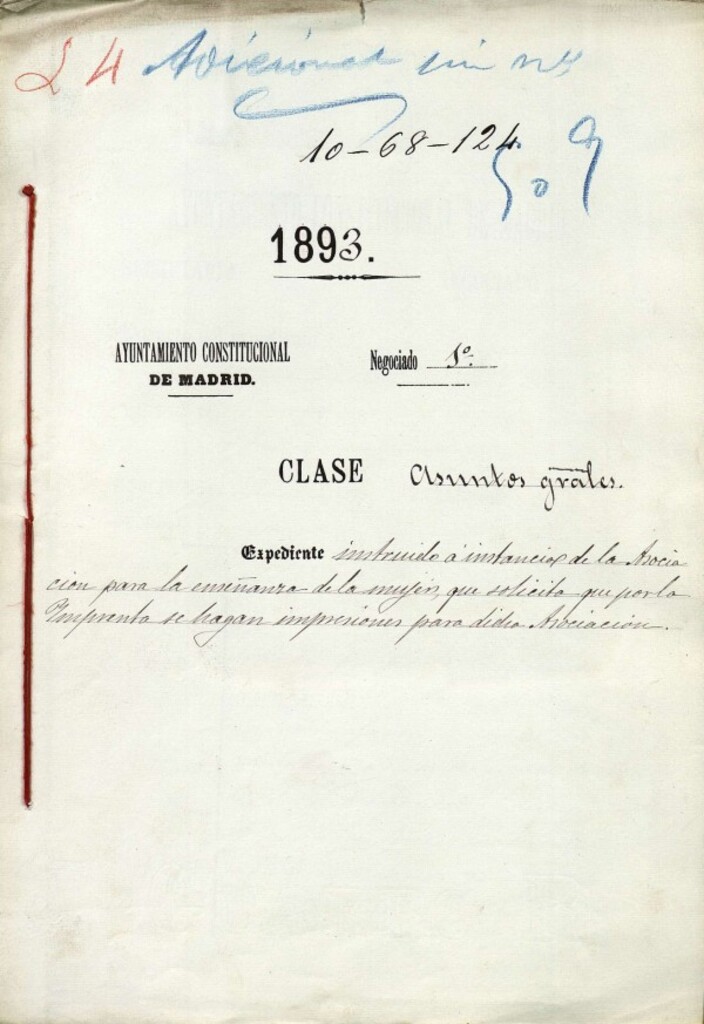 24 Adicional sin nº
10-68-124
1893.
AYUNTAMIENTO CONSTITUCIONAL
DE MADRID.
Negociado 5º.
CLASE Asuntos grales.
Expediente instruido á instancia de la Asocia
cion para la enseñanza de la mujer, que solicita que por la
Imprenta se hagan impresiones para dicha Asociacion.